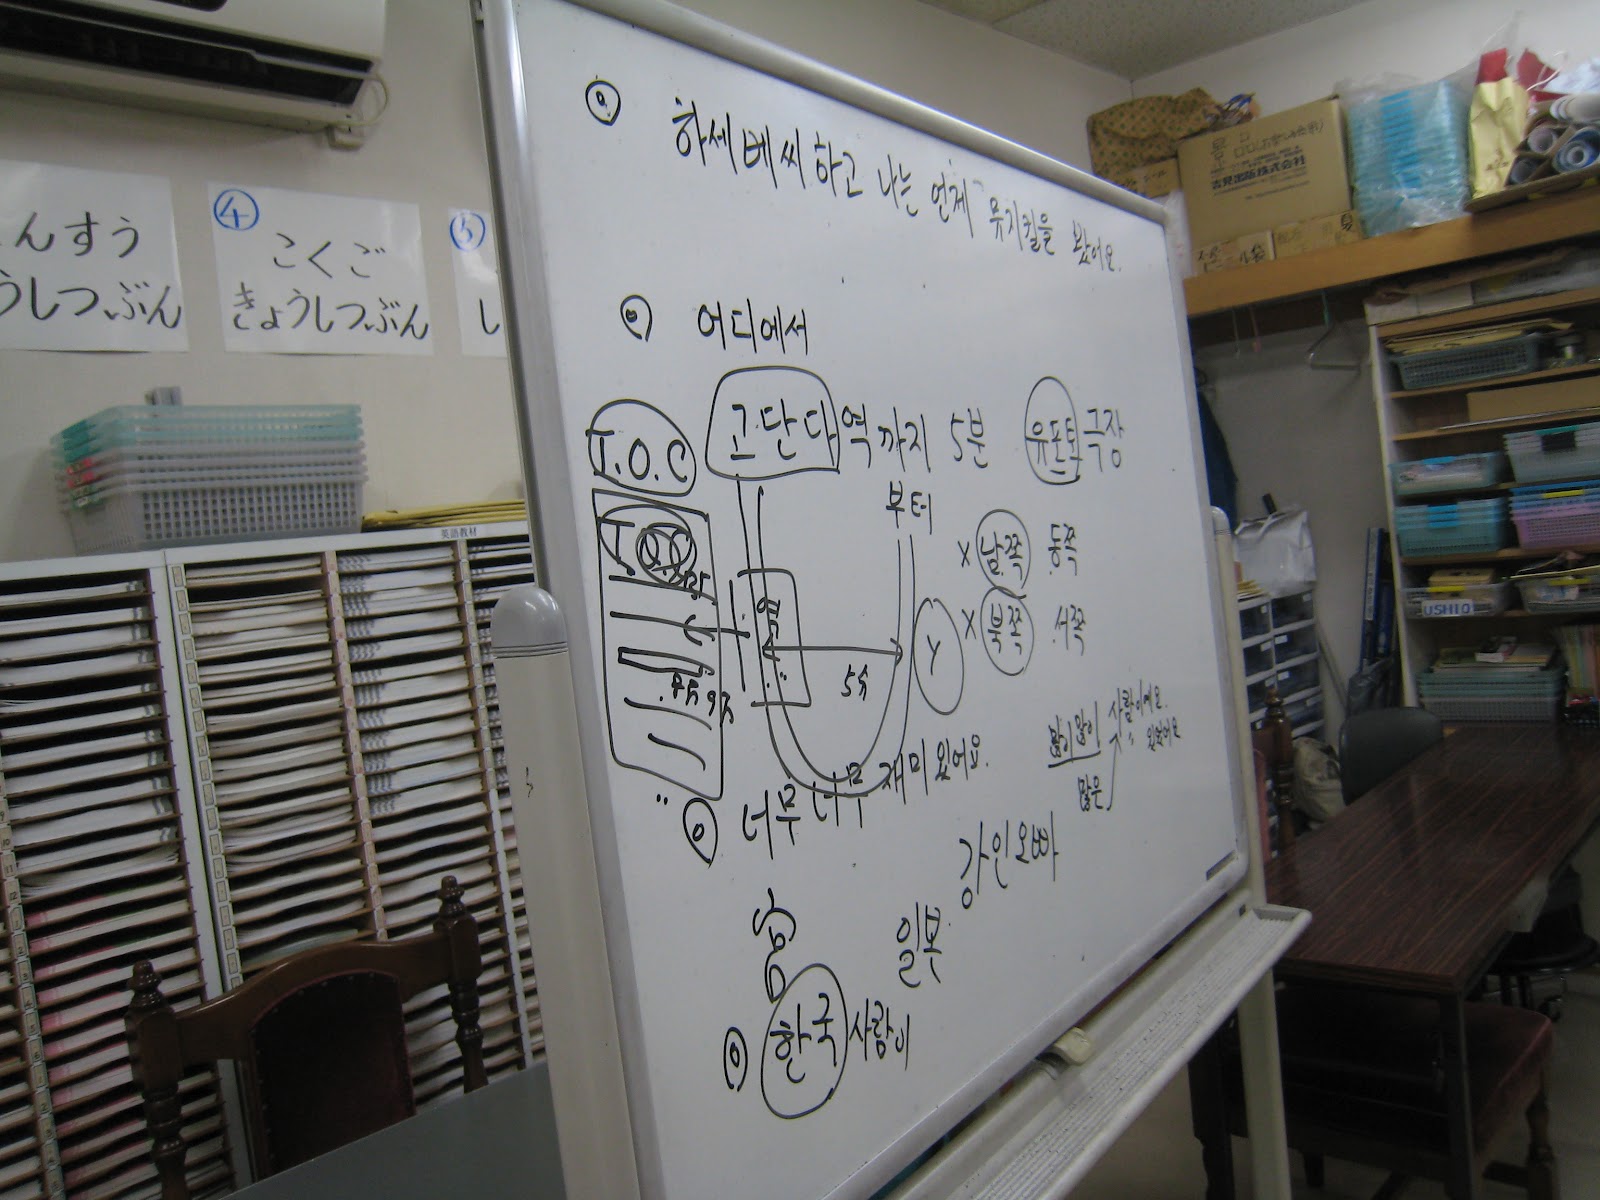 하세베씨하고 나는 언제 뮤지컬을 봤어요.
어디에서
T.O.C
고단다역까지 5분 유포토극장
부터
X 남쪽 동쪽
X 북쪽 서쪽
T.O.C
역
5分
Y
많이 많이 사람이에요.
많은 있었어요
너무 너무 재미있어요.
강인오빠
일본
한국사람이
んすう
うしつぶん
④
こくご
きょうしつぶん
⑤
し
英語教材
吉見出版株式会社
USHIO